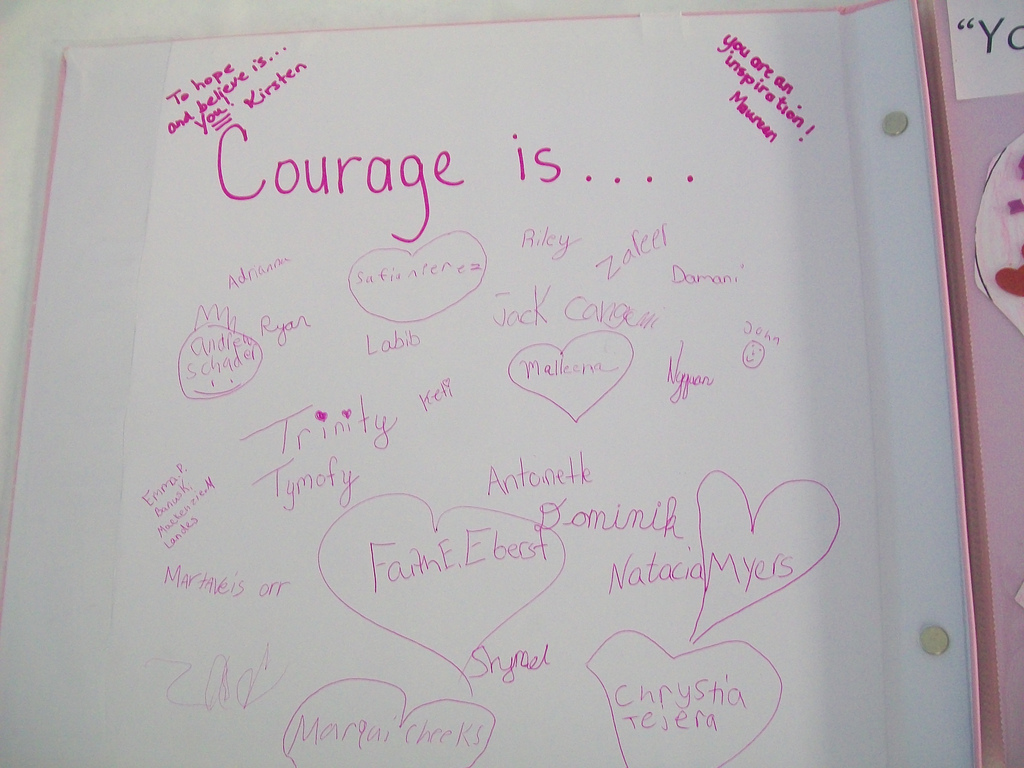 To hope
and believe is...
you! Kirsten
you are an
inspiration!
Maureen
"Yo
Courage is.....
Adrianna
Riley
Zafeer
Damani
Jack Cangemi
Ryan
andrew
schader
Labib
Malleena
John
Trinity
Keli
Tymofy
Antoinette
Emma P.
Landes
Dominik
Faith E. Eberst
Natacia Myers
Martaveis orr
Shymel
Zad
Chrystia
Tejera
Marqai cheeks